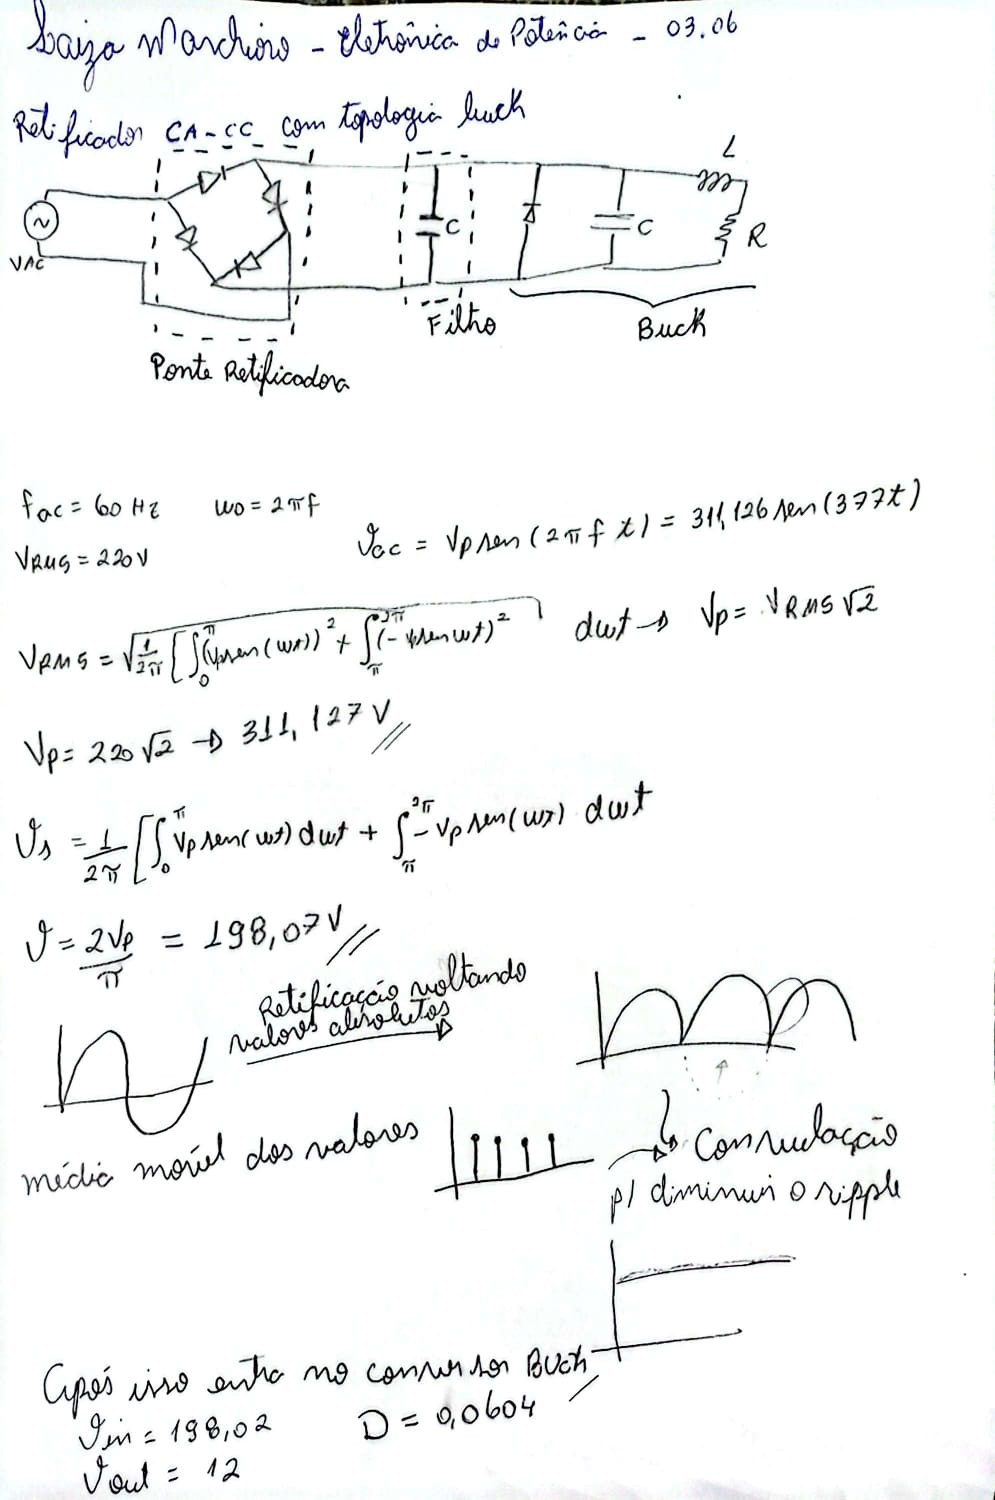 Laiza Marchioro - Eletrônica de Potência - 03.06
Retificador CA-CC com topologia buck
L
C
C
R
VAC
Filtro
Buck
Ponte Retificadora
fac = 60 Hz    wo = 2πf
Vac = Vp sen (2π f t) = 311,126 sen (377t)
VRMS = 220V
VRMS = √1/2π [∫0^π (Vpsen(wt))² + ∫π^2π (-Vpsen wt)² dwt → Vp = VRMS √2
Vp = 220√2 → 311,127 V
Vs = 1/2π [∫0^π Vp sen(wt) dwt + ∫π^2π -Vp sen(wt) dwt
V = 2Vp/π = 198,07V
Retificação voltando
valores absolutos
média movel dos valores
Convulação
p/ diminuir o ripple
Após isso entra no conversor Buck
Vin = 198,02    D = 0,0604
Vout = 12